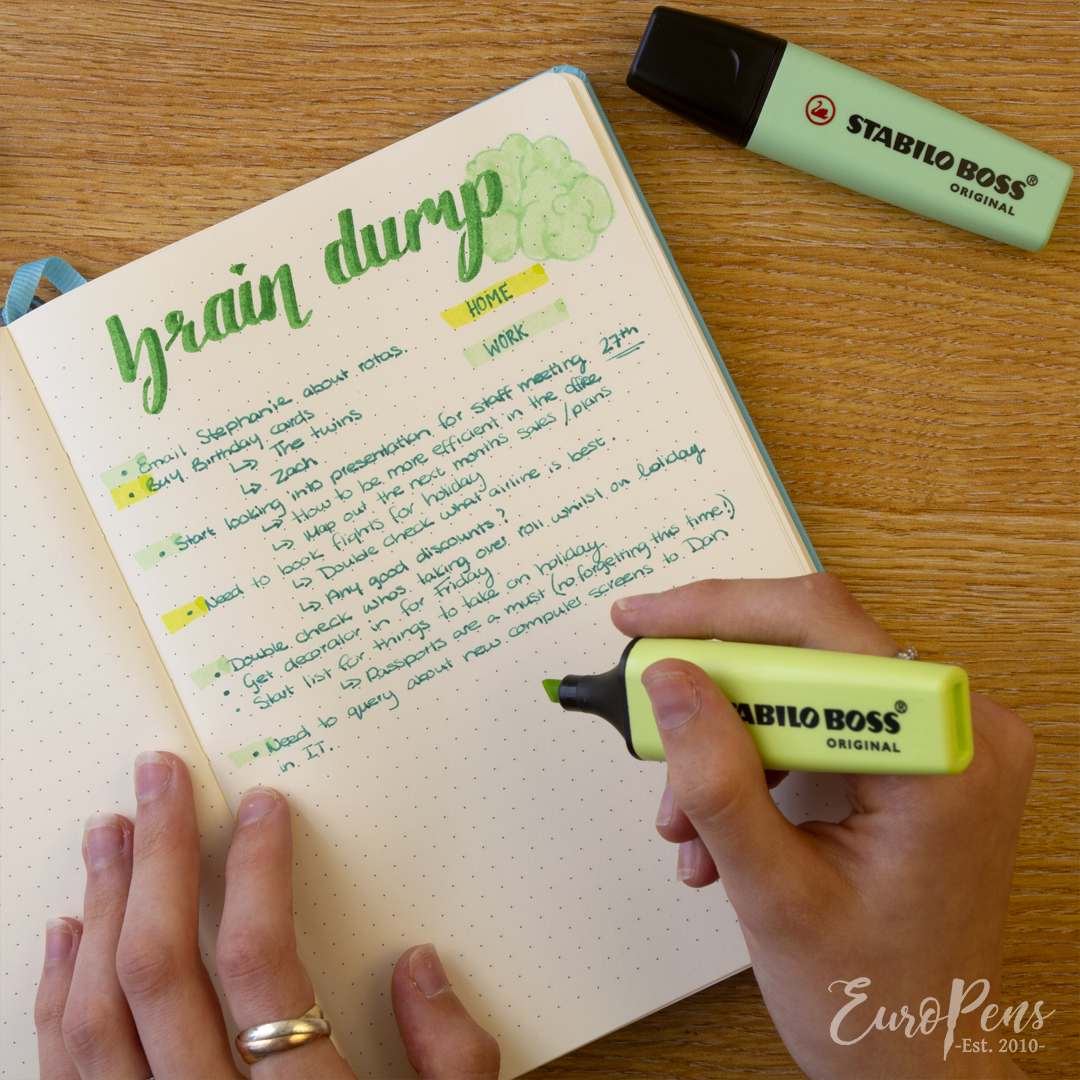 STABILO BOSS®
ORIGINAL
brain dump
HOME
WORK
• Email Stephanie about rotas.
• Buy Birthday cards
↳ The twins
↳ Zach
• Start looking into presentation for staff meeting 27th
↳ How to be more efficient in the office
↳ Map out the next months sales/plans
• Need to book flights for holiday
↳ Double check what airline is best.
↳ Any good discounts?
• Double check whos taking over roll whilst on holiday.
• Get decorator in for Friday
• Start list for things to take on holiday.
↳ Passports are a must (no forgetting this time!)
• Need to query about new computer screens to Dan
in I.T.
TABILO BOSS®
ORIGINAL
EuroPens
-Est. 2010-